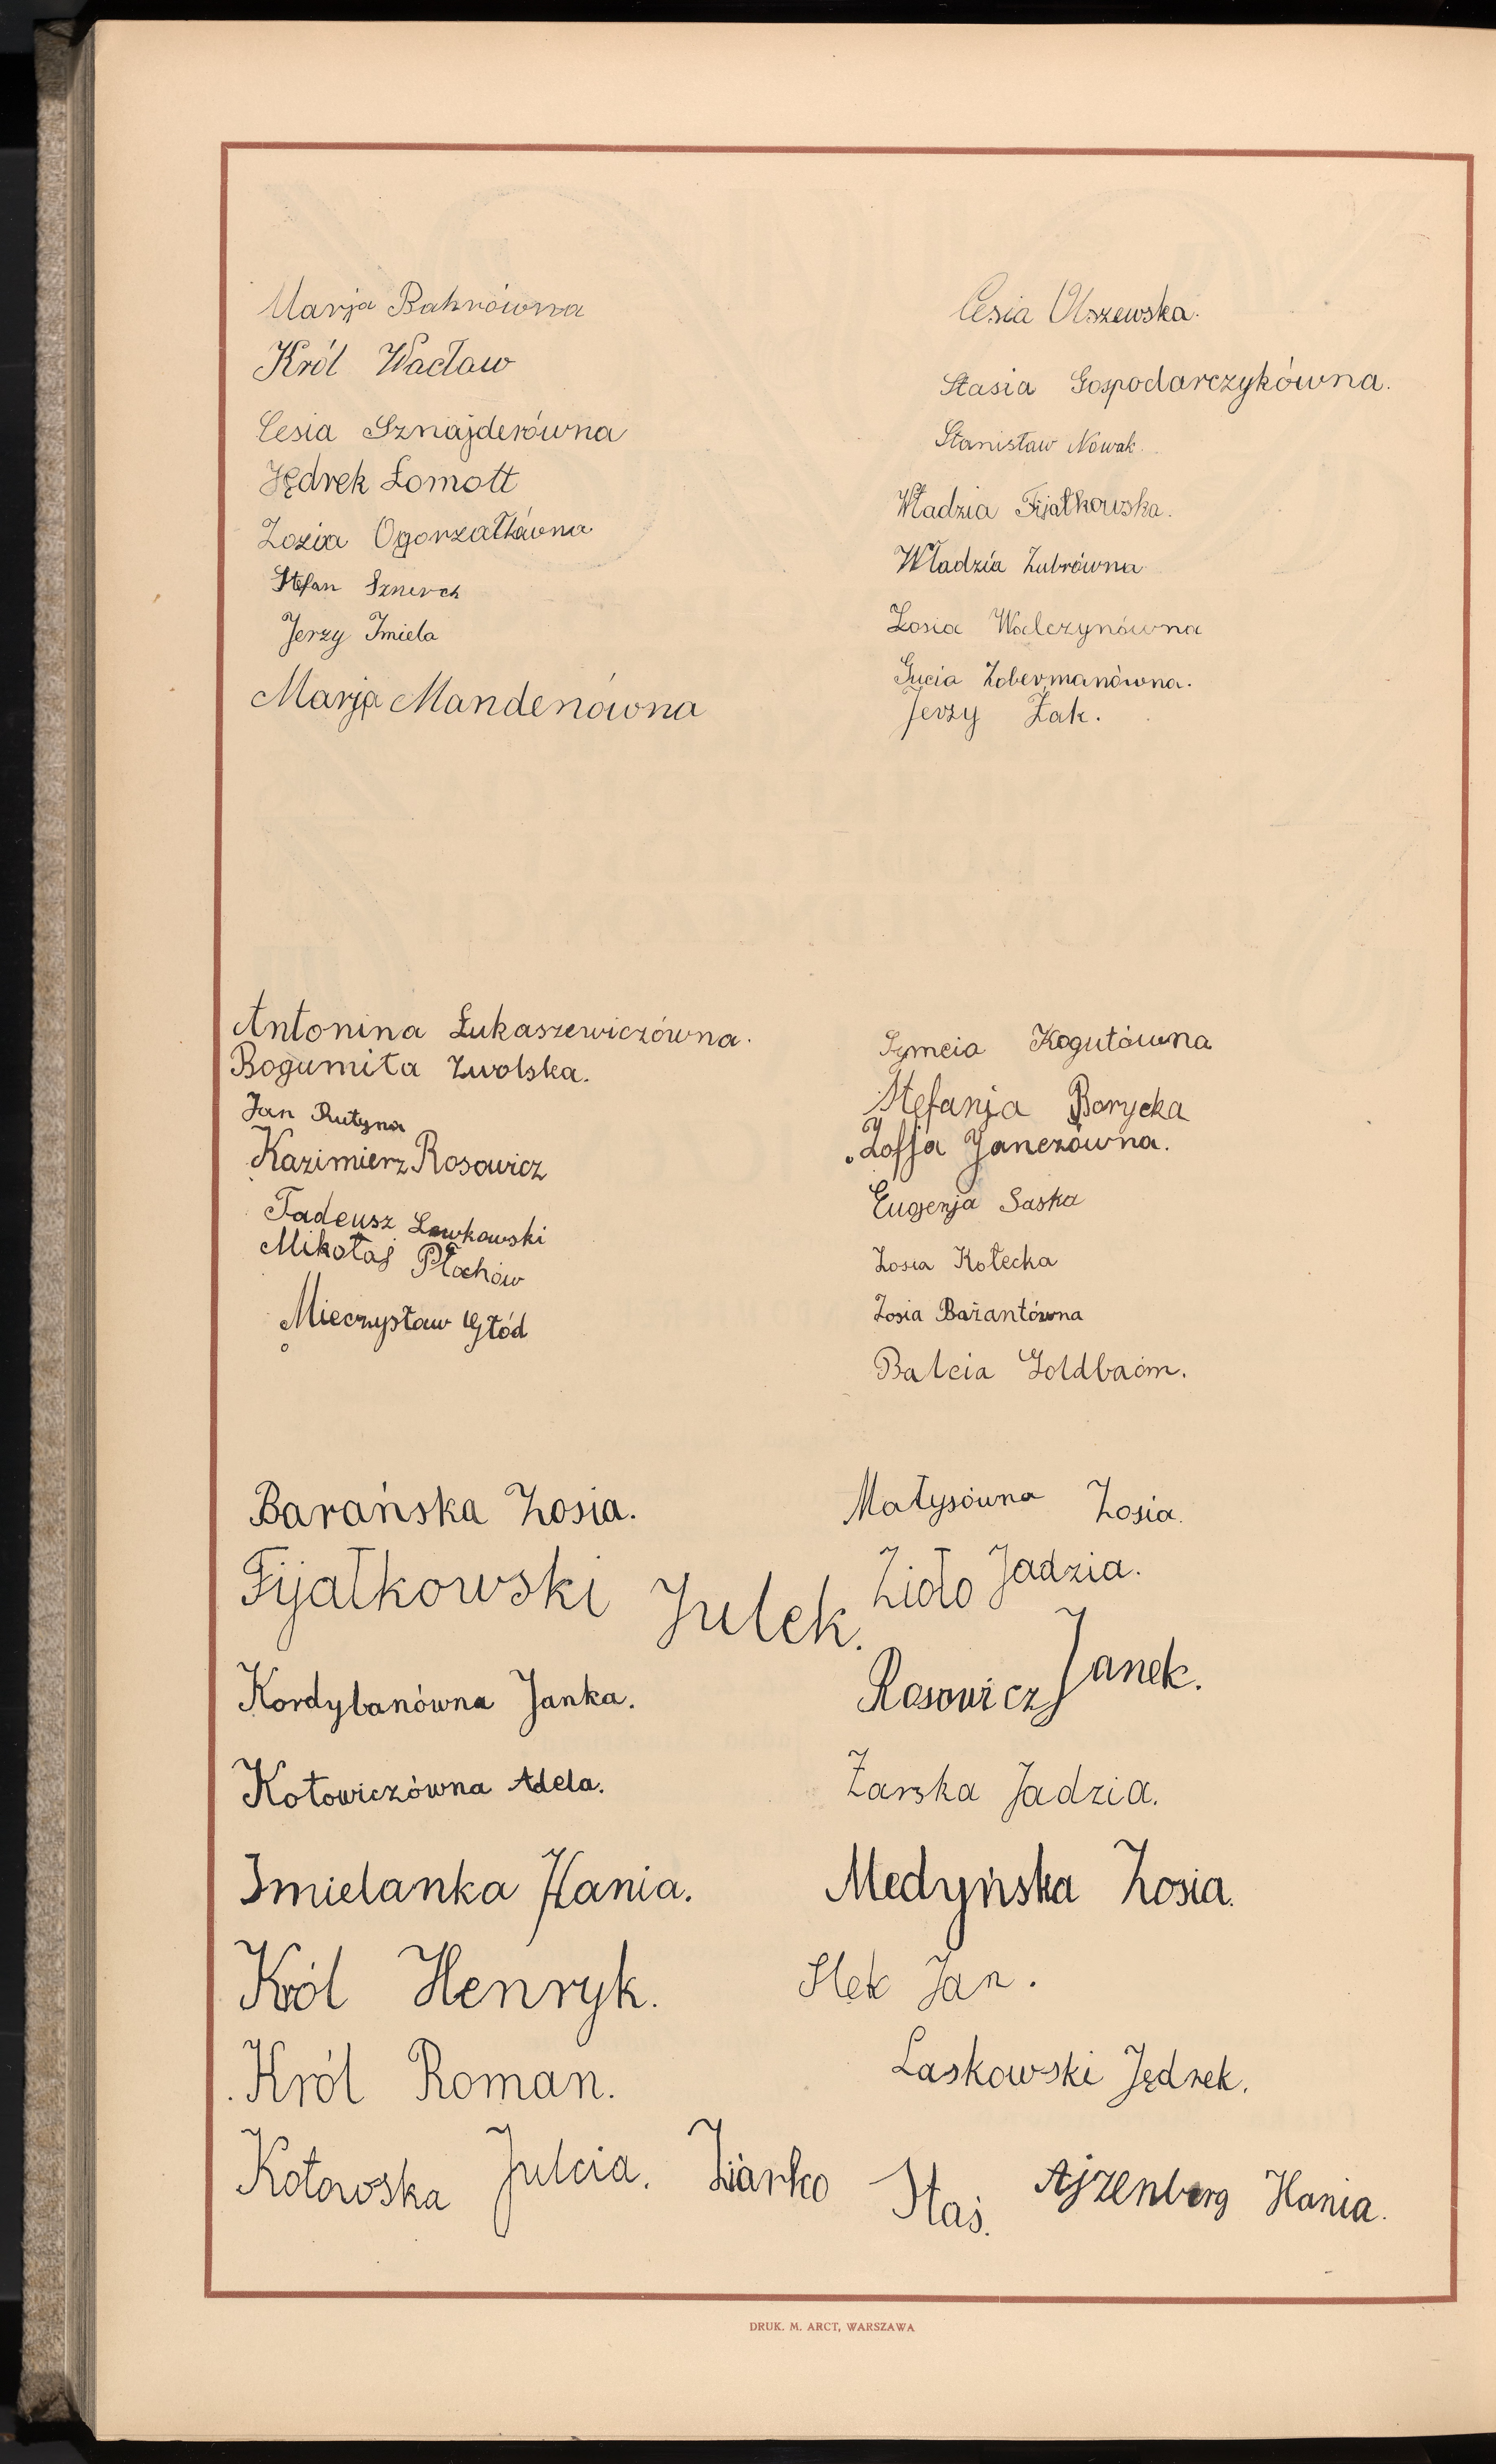 Marja Bahrówna
Król Wacław
Cesia Sznajderówna
Jędrek Łomott
Zozia Ogorzałkówna
Stefan Sznerch
Jerzy Imiela
Marja Mandenówna
Cesia Olszewska.
Stasia Gospodarczykówna.
Stanisław Nowak.
Władzia Fijałkowska.
Władzia Zubrówna
Zosia Walczynówna
Gucia Zobermanówna.
Jerzy Żak.
Antonina Łukaszewiczówna.
Bogumiła Zwolska.
Jan Rutyna
Kazimierz Rosowicz
Tadeusz Lewkowski
Mikołaj Płochów
Mieczysław Głód
Symcia Kogutówna
Stefanja Borycka
Zofja Janczówna.
Eugenja Saska
Zosia Kołecka
Zosia Bażantówna
Balcia Goldbaom.
Barańska Zosia.
Fijałkowski Julek.
Kordybanówna Janka.
Kotowiczówna Adela.
Imielanka Hania.
Król Henryk.
Król Roman.
Kotowska Julcia.
Małysówna Zosia.
Zioło Jadzia.
Rosowicz Janek.
Żarska Jadzia.
Medyńska Zosia.
Stęk Jan.
Laskowski Jędrek.
Ziarko Staś.
Ajzenberg Hania.
DRUK. M. ARCT, WARSZAWA